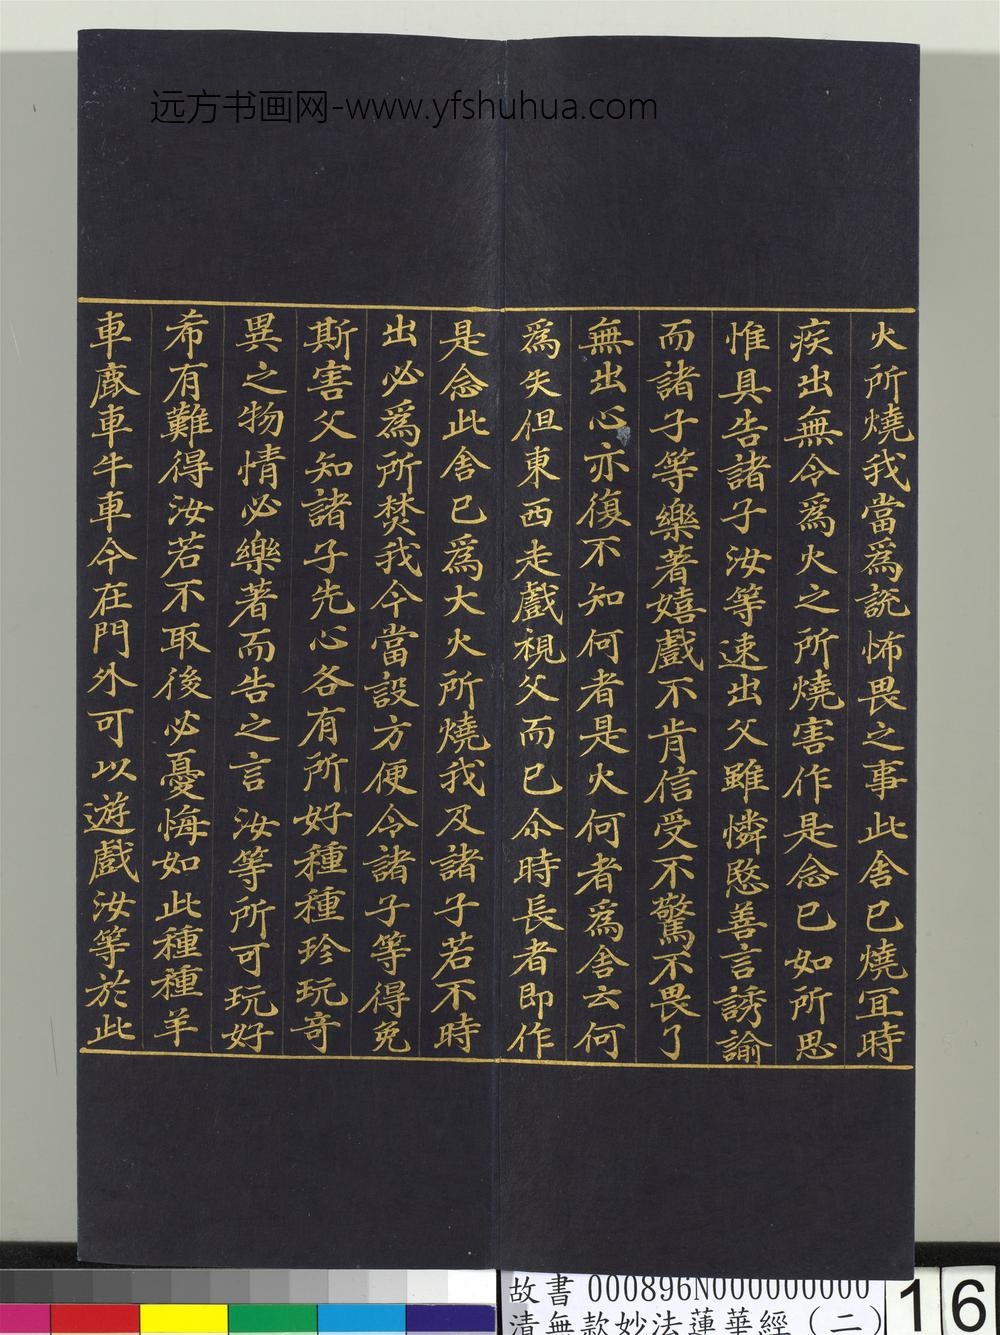 远方书画网-www.yfshuhua.com
火所燒我當為說怖畏之事此舍已燒宜時
疾出無令為火之所燒害作是念已如所思
惟具告諸子汝等速出父雖憐愍善言誘諭
而諸子等樂著嬉戲不肯信受不驚不畏了
無出心亦復不知何者是火何者為舍云何
為失但東西走戲視父而已尒時長者即作
是念此舍已為大火所燒我及諸子若不時
出必為所焚我今當設方便令諸子等得免
斯害父知諸子先心各有所好種種珍玩奇
異之物情必樂著而告之言汝等所可玩好
希有難得汝若不取後必憂悔如此種種羊
車鹿車牛車今在門外可以遊戲汝等於此
故書 000896N000000000
清無款妙法蓮華經（二）
16